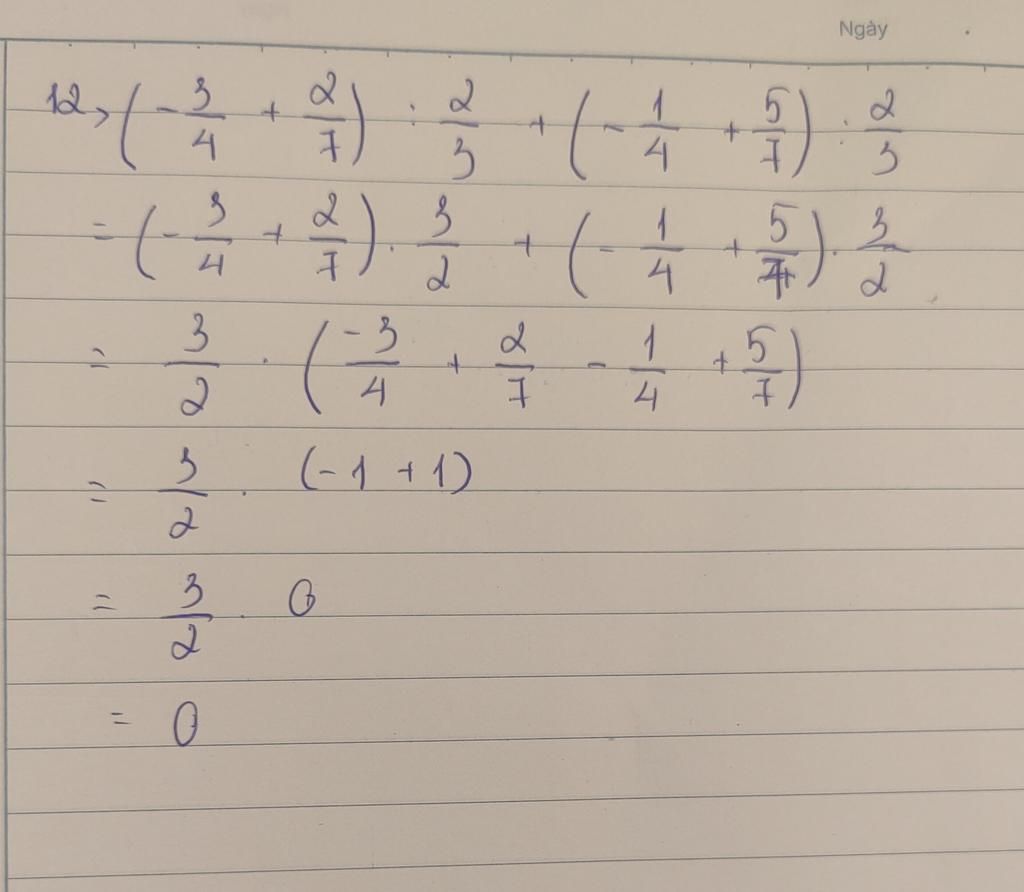 Ngày
12, (-3/4 + 2/7) : 2/3 + (-1/4 + 5/7) : 2/3
= (-3/4 + 2/7) . 3/2 + (-1/4 + 5/7) . 3/2
= 3/2 . (-3/4 + 2/7 - 1/4 + 5/7)
= 3/2 . (-1 + 1)
= 3/2 . 0
= 0